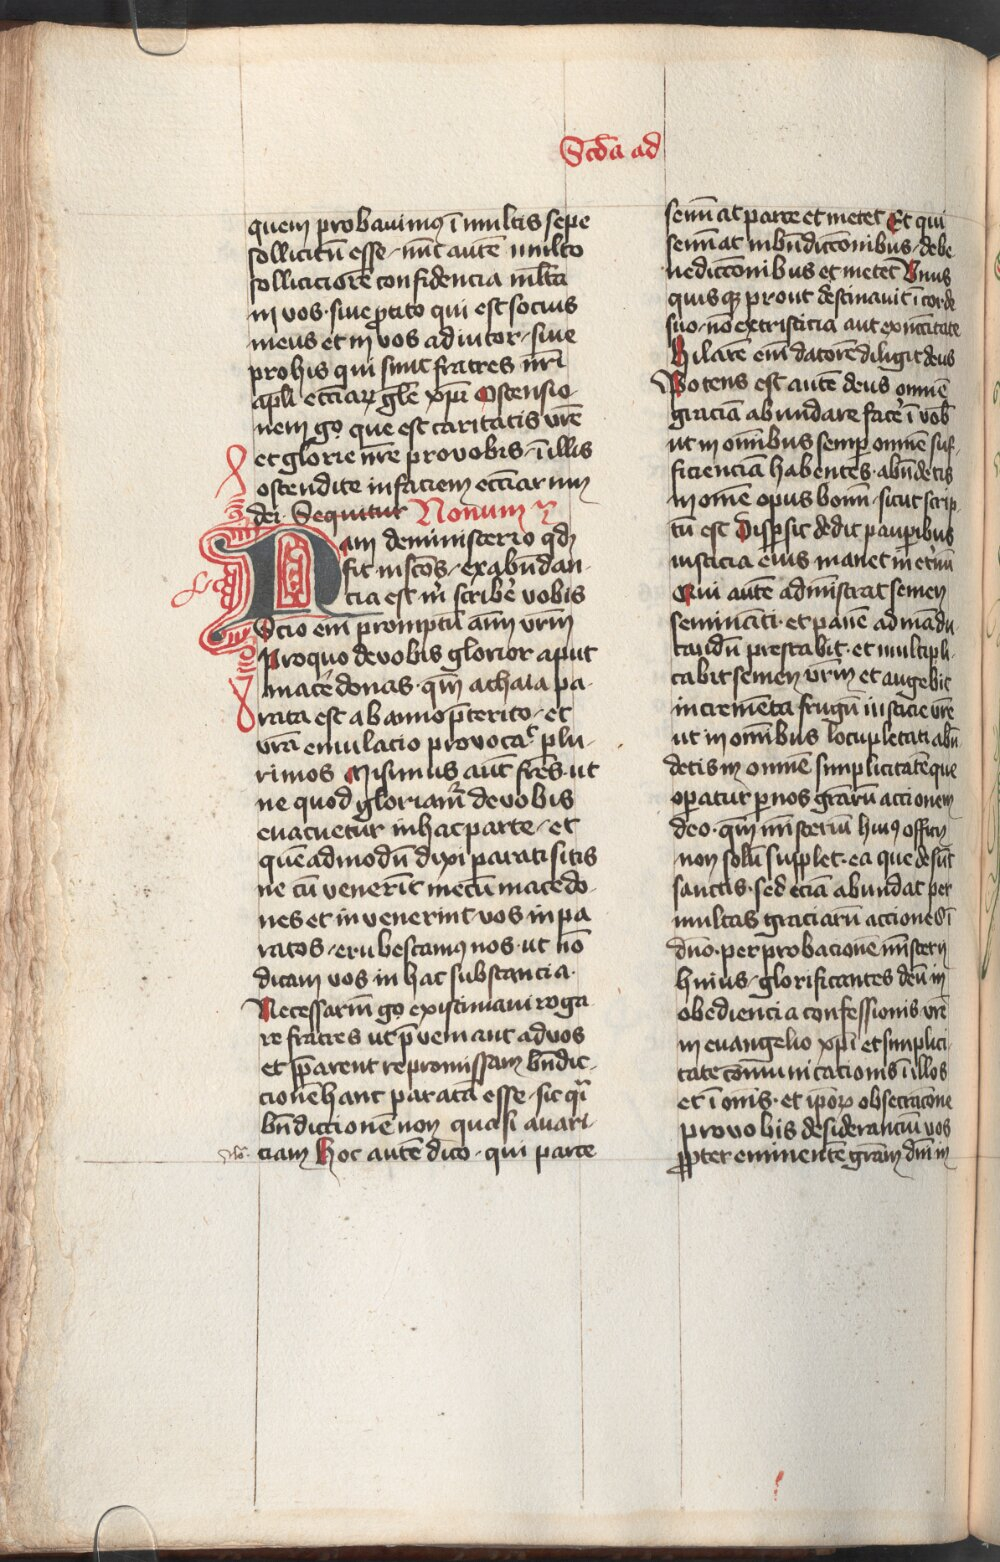 Scd̄a ad
quem probauimꝯ ī multis sepe
sollicitū esse · nūc autē multo
solliciciorē confidencia ml̄ta
in vos · siue ꝓ tito qui est socius
meus et in vos adiutor · siue
pro his qui sunt fratres nr̄i
apl̄i ecc̄iaꝝ gl̄e xp̄i Ostensio
nem gͦ que est caritatis vr̄e
et glorie nr̄e pro vobis · ī illis
ostendite in faciem ecc̄iarum
dei · Sequitur Nonum
Nam de ministerio qd̄
fit in sc̄os · ex abūdan
cia est m̄ scribe͛ vobis
Scio em̄ promptū aīm vr̄m
Pro quo de vobis glorior aput
mace͛donas · qm̄ achaia pa
rata est ab anno p̄terito · et
vr̄a emulacio prouocaᵗ plu
rimos Misimus aut̄ fr̄es · ut
ne quod gloriamᷣ de vobis
euacuetur in hac parte · et
quēadmodū dixi parati sitis
ne cū venerīt mecū macedo
nes et inuenerint vos inpa
ratos · erubescamꝯ nos · ut nō
dicam vos in hac substancia ·
Necessariū gͦ existimaui roga
re fratres ut p̄ueniant ad vos
et p̄parent repromissam bn̄dic
cionē hanc paratā esse · sic qᷓi
bn̄diccionē non quasi auari
ciam Hoc autē dico · qui parce
seminat parce et metet Et qui
seminat in bn̄dicc̄onibus · de be
nedicc̄onibus et metet Vnus
quisqꝫ prout destinauit ī corde
suo · nō ex tristicia aut ex nc̄citate
Hilarē em̄ datorē diligit deus
Potens est autē deus omnē
graciā abundare face͛ ī vob̄
ut in om̄ibus semꝑ omnē suf
ficienciā habentes · abūdetis
in om̄e opus bonū · sicut scrip
tū est Dispersit dedit pauꝑibus
iusticia eius manet in et͛nū
Qui autē admīstrat semen
semināti · et panē ad mādu
candū prestabit · et multipli
cabit semen vr̄m et augebit
incremēta frugū iusticie vr̄e
ut in om̄ibus locupletati abū
detis in omnē simplicitatē que
oꝑatur ꝑ nos gr̄arū accionem
deo · qm̄ mīsteriū huiꝯ officij
non solū supplet · ea que desūt
sanctis · sed eciā abundat per
multas graciarū acciones ī
dn̄o · per probacionē mīsterij
huius · glorificantes deū in
obediencia confessionis vr̄e
in euangelio xp̄i et simplici
tate com̄unicationis ī illos
et ī om̄s · et ip̄oꝝ obsecrac̄one
pro vobis desiderancium vos
ꝓpter eminentē gr̄am dei in